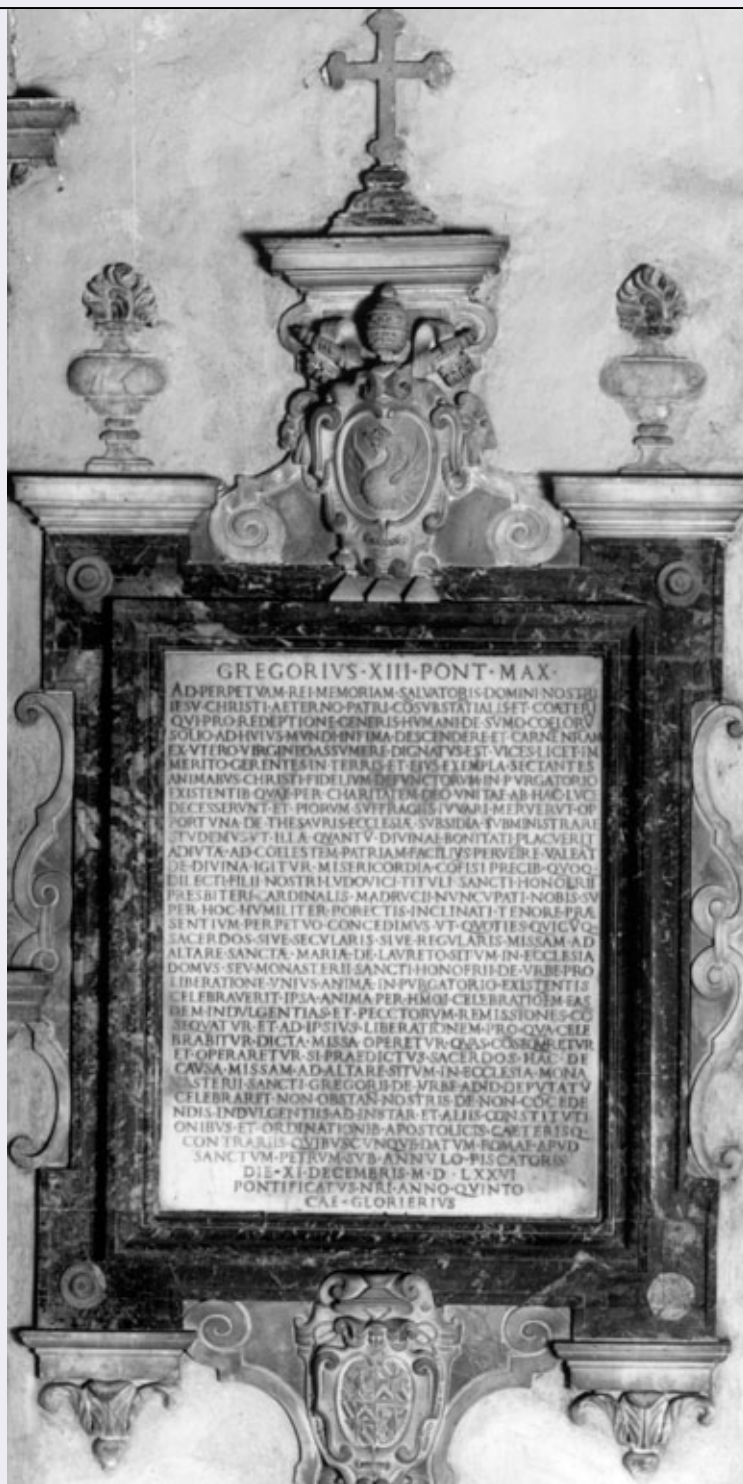 GREGORIVS·XIII·PONT·MAX·
AD·PERPETVAM·REI·MEMORIAM·SALVATORIS·DOMINI·NOSTRI
IESV·CHRISTI·AETERNO·PATRI·COSVBSTATIALIS·ET·COATERI
QVI·PRO·REDEPTIONE·GENERIS·HVMANI·DE·SVMO·COELORV
SOLIO·AD·HVIVS·MVNDI·INFIMA·DESCENDERE·ET·CARNEN
EX·VTERO·VIRGINEO·ASSVMERE·DIGNATVS·EST·VICES·LICET·IN
MERITO·GERENTES·IN·TERRIS·ET·EIVS·EXEMPLA·SECTANTES
ANIMABVS·CHRISTI·FIDELIVM·DEFVNCTORVM·IN·PVRGATORIO
EXISTENTIB·QVAE·PER·CHARITATEM·DEO·VNITAE·AB·HAC·LVC
DECESSERVNT·ET·PIORVM·SVFFRAGIIS·IVVARI·MERVERVT·OP
PORTVNA·DE·THESAVRIS·ECCLESIÆ·SVBSIDIA·SVBMINISTRARE
STVDEMVS·VT·ILLÆ·QVANTV·DIVINAE·BONITATI·PLACVERIT
ADIVTÆ·AD·COELESTEM·PATRIAM·FACILIVS·PERVEIRE·VALEAT
DE·DIVINA·IGITVR·MISERICORDIA·COFISI·PRECIB·QVOQ
DILECTI·FILII·NOSTRI·LVDOVICI·TITVLI·SANCTI·HONOFRII
PRESBITERI·CARDINALIS·MADRVCII·NVNCVPATI·NOBIS·SV
PER·HOC·HVMILITER·PORECTIS·INCLINATI·TENORE·PRÆ
SENTIVM·PERPETVO·CONCEDIMVS·VT·QVOTIES·QVICVQ
SACERDOS·SIVE·SECVLARIS·SIVE·REGVLARIS·MISSAM·AD
ALTARE·SANCTÆ·MARIÆ·DE·LAVRETO·SITVM·IN·ECCLESIA
DOMVS·SEV·MONASTERII·SANCTI·HONOFRII·DE·VRBE·PRO
LIBERATIONE·VNIVS·ANIMÆ·IN·PVRGATORIO·EXISTENTIS
CELEBRAVERIT·IPSA·ANIMA·PER·HMOI·CELEBRATIOEM·EAS
DEM·INDVLGENTIAS·ET·PECCTORVM·REMISSIONES·CO
SEQVATVR·ET·AD·IPSIVS·LIBERATIONEM·PRO·QVA·CELE
BRABITVR·DICTA·MISSA·OPERETVR·QVAS·COSEQVERETVR
ET·OPERARETVR·SI·PRAEDICTVS·SACERDOS·HAC·DE
CAVSA·MISSAM·AD·ALTARE·SITVM·IN·ECCLESIA·MONA
ASTERII·SANCTI·GREGORII·DE·VRBE·AD·ID·DEPVTATV
CELEBRARET·NON·OBSTAN·NOSTRIS·DE·NON·COCEDE
NDIS·INDVLGENTIIS·AD·INSTAR·ET·ALIIS·CONSTITVTI
ONIBVS·ET·ORDINATIONIB·APOSTOLICIS·CAETERISQ
CONTRARIIS·QVIBVSCVNQVE·DATVM·ROMAE·APVD
SANCTVM·PETRVM·SVB·ANNVLO·PISCATORIS
DIE·XI·DECEMBRIS·M·D·LXXVI
PONTIFICATVS·NRI·ANNO·QVINTO
CAE·GLORIERIVS